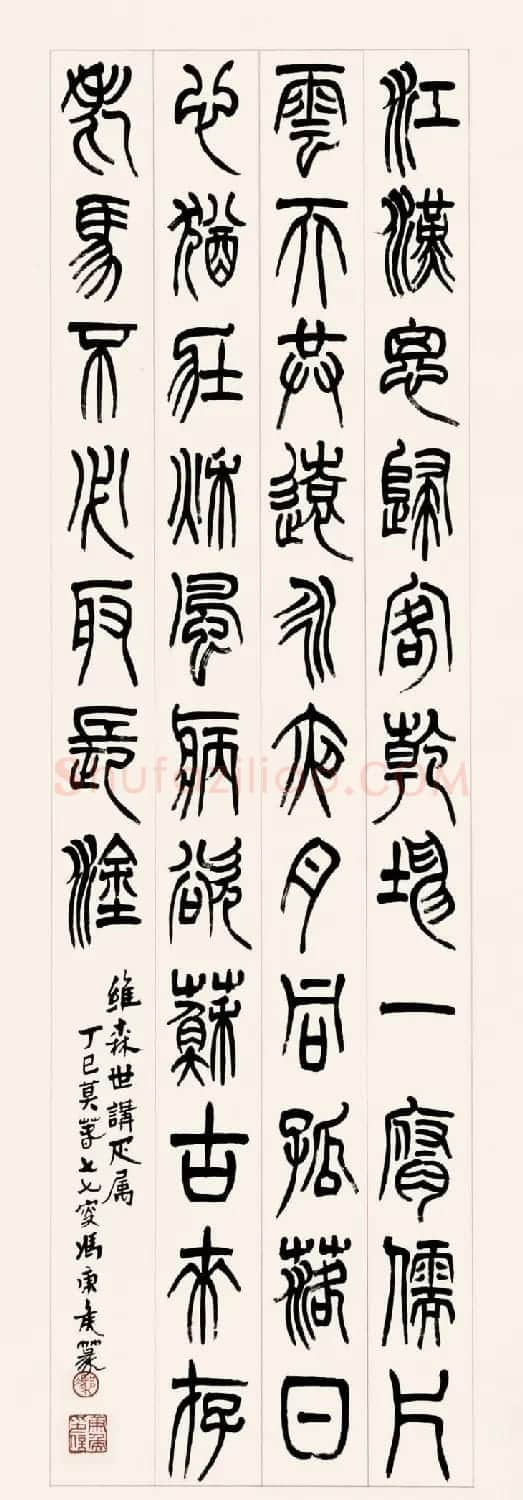 江漢思歸客乾坤一腐儒片
雲天共遠永夜月同孤落日
心猶壯秋風病欲蘇古來存
老馬不必取長塗
維森世講正属
丁巳莫萅七七叟馮康矦篆
Shufaziliao.COM